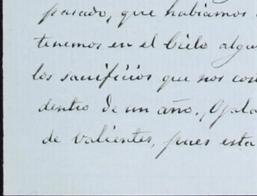 pasado, que habiamos
tenemos en el Cielo algu
los sacrificios que nos cos
dentro de un año. ¡Ojala
de valientes, pues esta